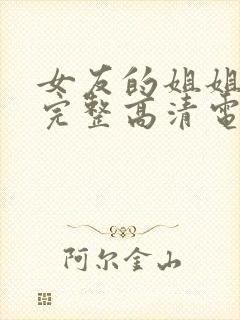 女友的姐姐
完整高清电
阿尔金山